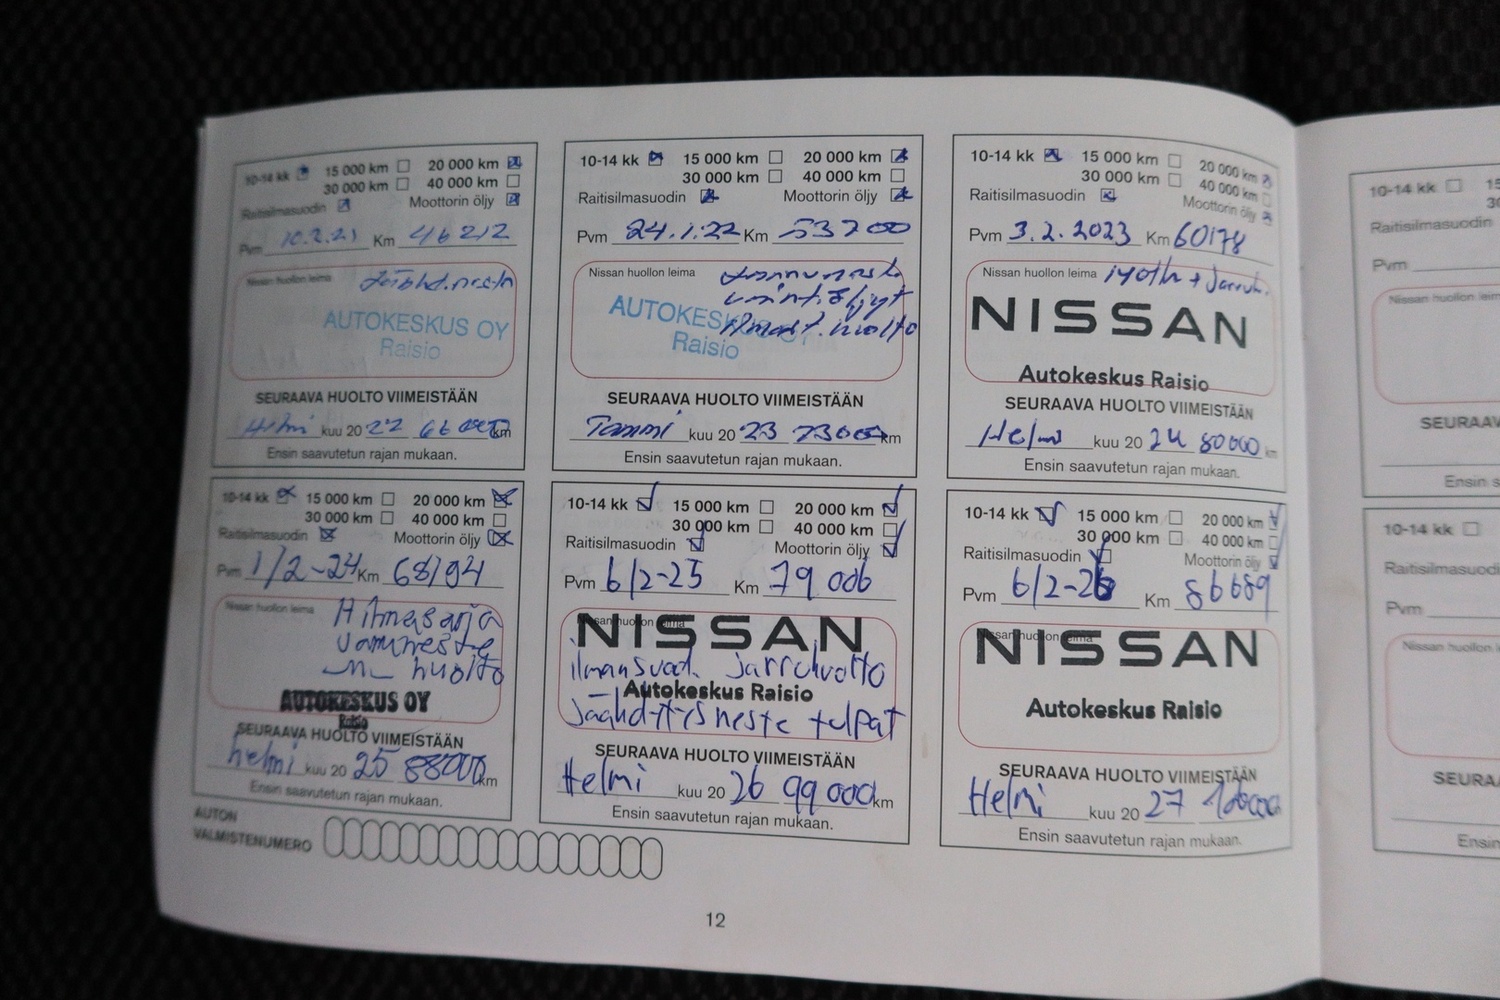 10-14 kk 15 000 km 20 000 km
30 000 km 40 000 km
Raitisilmasuodin Moottorin öljy
Pvm 10.2.21 Km 46212
Nissan huollon leima Jäähd.neste
AUTOKESKUS OY
Raisio
SEURAAVA HUOLTO VIIMEISTÄÄN
Helmi kuu 20 22 66 000 km
Ensin saavutetun rajan mukaan.
10-14 kk 15 000 km 20 000 km
30 000 km 40 000 km
Raitisilmasuodin Moottorin öljy
Pvm 24.1.22 Km 53200
Nissan huollon leima
AUTOKESKUS OY
Ilmast. huolto
Raisio
SEURAAVA HUOLTO VIIMEISTÄÄN
Tammi kuu 20 23 73000 km
Ensin saavutetun rajan mukaan.
10-14 kk 15 000 km 20 000 km
30 000 km 40 000 km
Raitisilmasuodin Moottorin öljy
Pvm 3.2.2023 Km 60178
Nissan huollon leima + Jarruh.
NISSAN
Autokeskus Raisio
SEURAAVA HUOLTO VIIMEISTÄÄN
Helmi kuu 20 24 80000 km
Ensin saavutetun rajan mukaan.
10-14 kk 15 000 km 20 000 km
30 000 km 40 000 km
Raitisilmasuodin Moottorin öljy
Pvm 1/2-24 Km 68194
Nissan huollon leima Hihnasarja
Jarruneste
huolto
AUTOKESKUS OY
Raisio
SEURAAVA HUOLTO VIIMEISTÄÄN
helmi kuu 20 25 88000 km
Ensin saavutetun rajan mukaan.
10-14 kk 15 000 km 20 000 km
30 000 km 40 000 km
Raitisilmasuodin Moottorin öljy
Pvm 6/2-25 Km 79 006
Nissan huollon leima
NISSAN
ilmansuod. jarruhuolto
Autokeskus Raisio
Jäähdytysneste tulpat
SEURAAVA HUOLTO VIIMEISTÄÄN
Helmi kuu 20 26 99 000 km
Ensin saavutetun rajan mukaan.
10-14 kk 15 000 km 20 000 km
30 000 km 40 000 km
Raitisilmasuodin Moottorin öljy
Pvm 6/2-26 Km 86689
Nissan huollon leima
NISSAN
Autokeskus Raisio
SEURAAVA HUOLTO VIIMEISTÄÄN
Helmi kuu 20 27
Ensin saavutetun rajan mukaan.
AUTON
VALMISTENUMERO
12
10-14 kk 15
30
Raitisilmasuodin
Pvm
Nissan huollon leim
SEURAAV
Ensin s
10-14 kk
Raitisilmasuodi
Pvm
Nissan huollon l
SEURA
Ensin